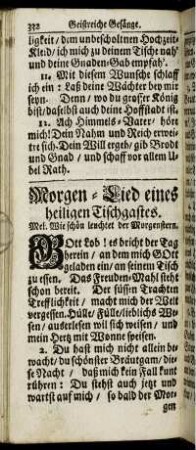 332 Geistreiche Gesänge.
ligkeit / dem unbescholtnen Hochzeit-
Kleid / ich mich zu deinem Tische nah'
und deine Gnaden-Gab empfah'.
11. Mit diesem Wunsche schlaff
ich ein: Laß deine Wächter bey mir
seyn. Denn / wo du grosser König
bist / daselbst auch deine Hoffstadt ist.
12. Ach Himmels-Vater / hör
mich! Dein Nahm und Reich erwei-
tre sich. Dein Will ergeh / gib Brodt
und Gnad / und schaff vor allem U-
bel Rath.
Morgen-Lied eines
heiligen Tischgastes.
Mel. Wie schön leuchtet der Morgenstern.
GOtt Lob! es bricht der Tag
herein / an dem mich GOtt
geladen ein / an seinem Tisch
zu essen. Das Freuden-Mahl steht
schon bereit. Der süssen Trachten
Trefflichkeit / macht mich der Welt
vergessen. Hülle / Fülle / lieblichs We-
sen / auserlesen wil sich weisen / und
mein Hertz mit Wonne speisen.
2. Du hast mich nicht allein be-
wacht / du schönster Bräutgam / die-
se Nacht / daß mich kein Fall kunt
rühren: Du stehst auch jetzt und
wartst auf mich / so bald der Mor-
gen